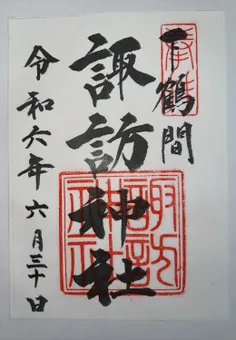 奉拝
下鶴間
諏訪神社
諏訪神社
令和六年六月三十日